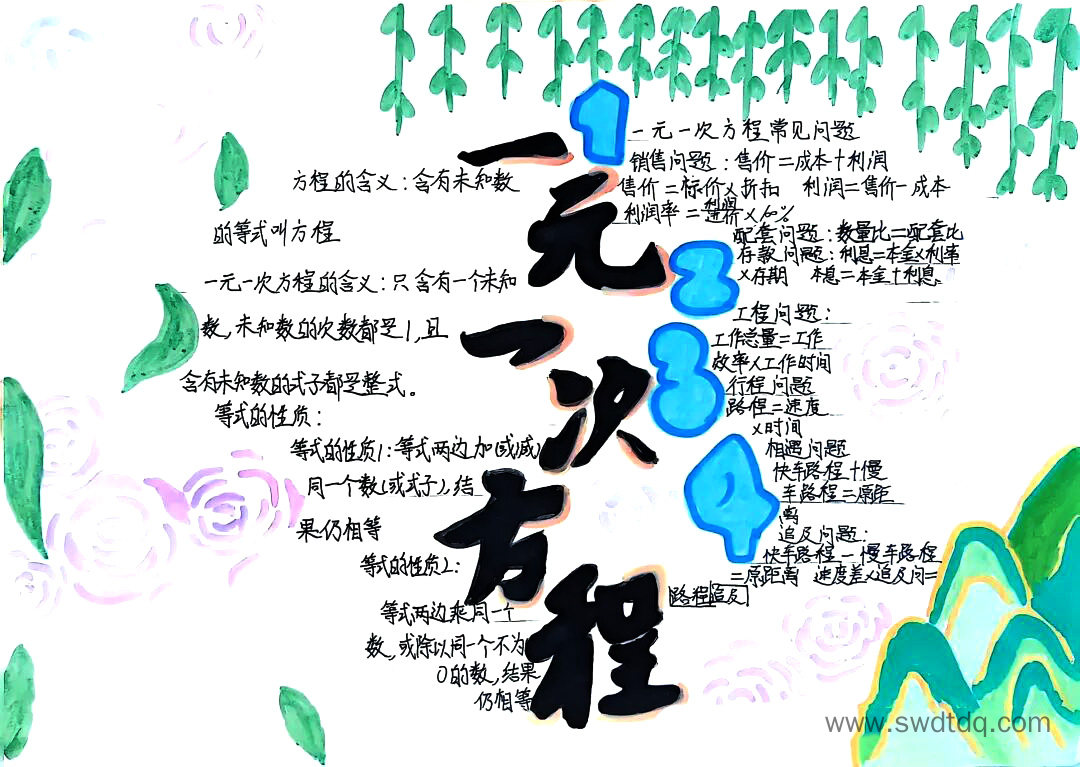 一元一次方程
方程的含义：含有未知数
的等式叫方程
一元一次方程的含义：只含有一个未知
数，未知数的次数都是1，且
含有未知数的式子都是整式。
等式的性质：
等式的性质1：等式两边加(或减)
同一个数(或式子)，结
果仍相等
等式的性质2：
等式两边乘同一个
数，或除以同一个不为
0的数，结果
仍相等
1
一元一次方程常见问题
销售问题：售价=成本+利润
售价=标价×折扣 利润=售价-成本
利润率=利润/进价×100%
2
配套问题：数量比=配套比
存款问题：利息=本金×利率
×存期 本息=本金+利息
3
工程问题：
工作总量=工作
效率×工作时间
行程问题
路程=速度
×时间
4
相遇问题
快车路程+慢
车路程=原距
离
追及问题：
快车路程-慢车路程
=原距离 速度差×追及问=
路程追及
www.swdtdq.com